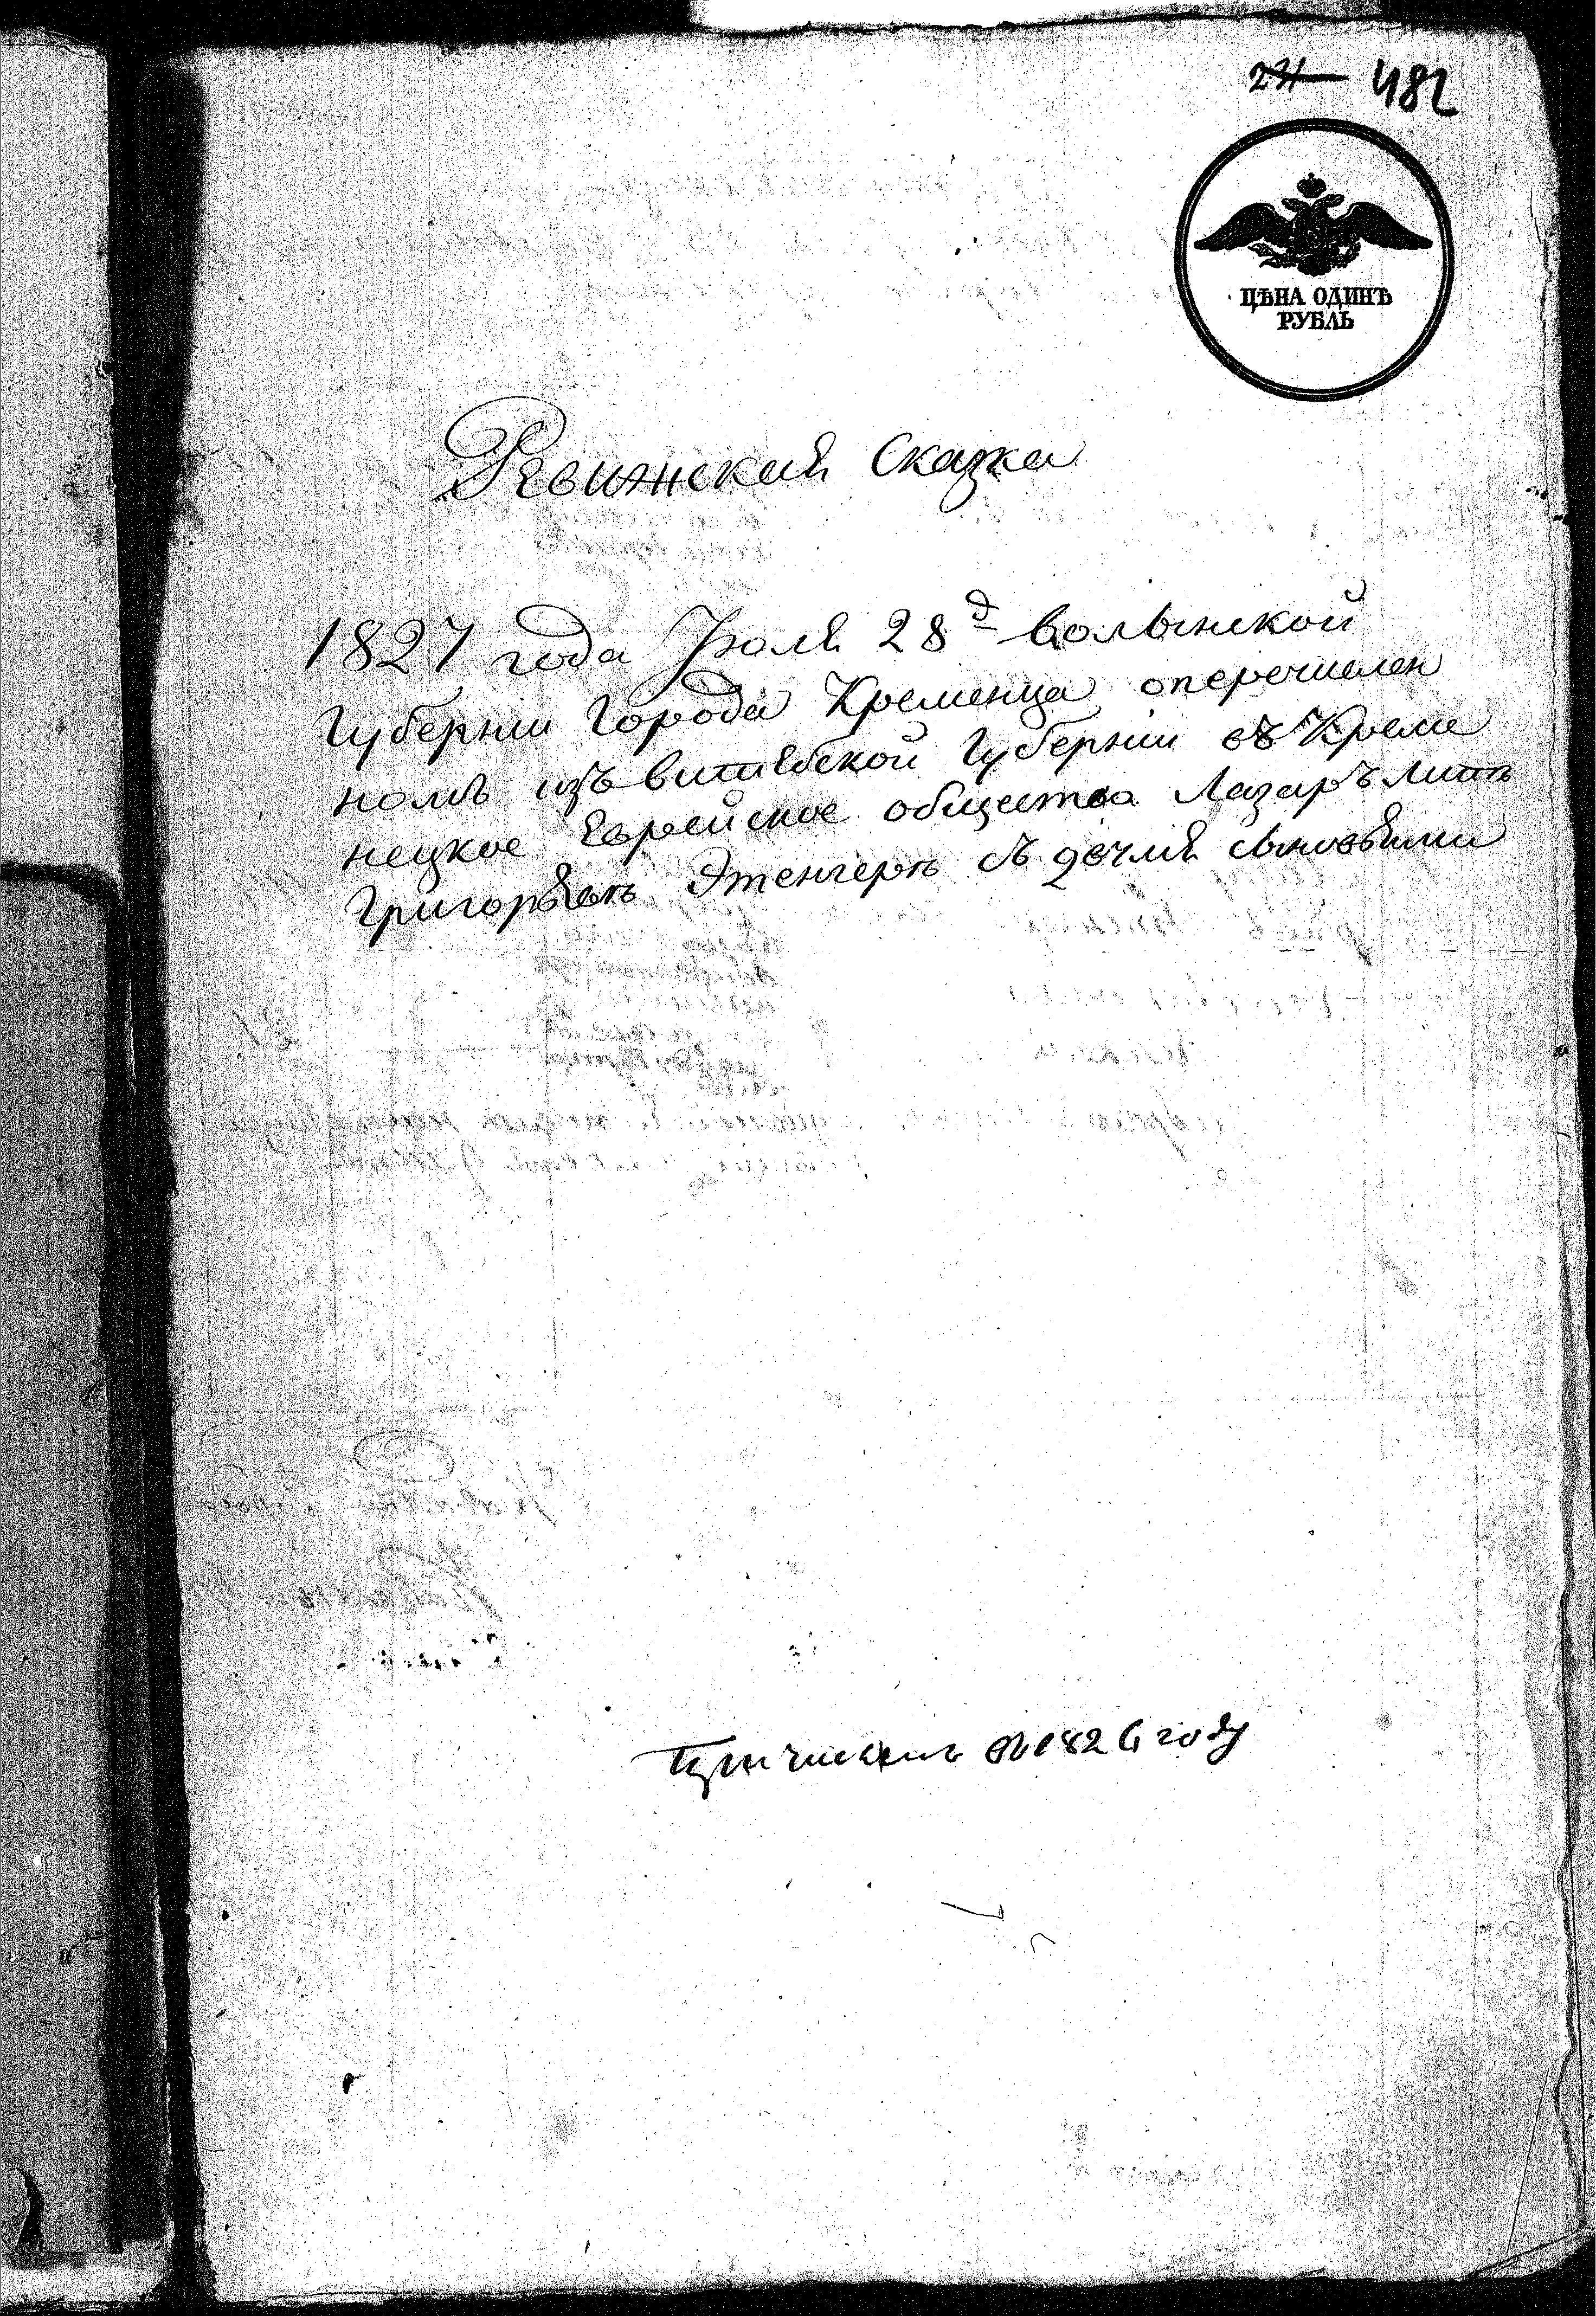 482
ЦѢНА ОДИНЪ
РУБЛЬ
Ревижская Сказка
1827 года Июля 28д Волынской
Губернии Города Кременца о перечислен
номъ изъ витебской Губернии въ Креме
нецкое Еврейское общество Лазаръ
Григорьевъ Этенгеръ съ двумя сыновьями
в 1826 году